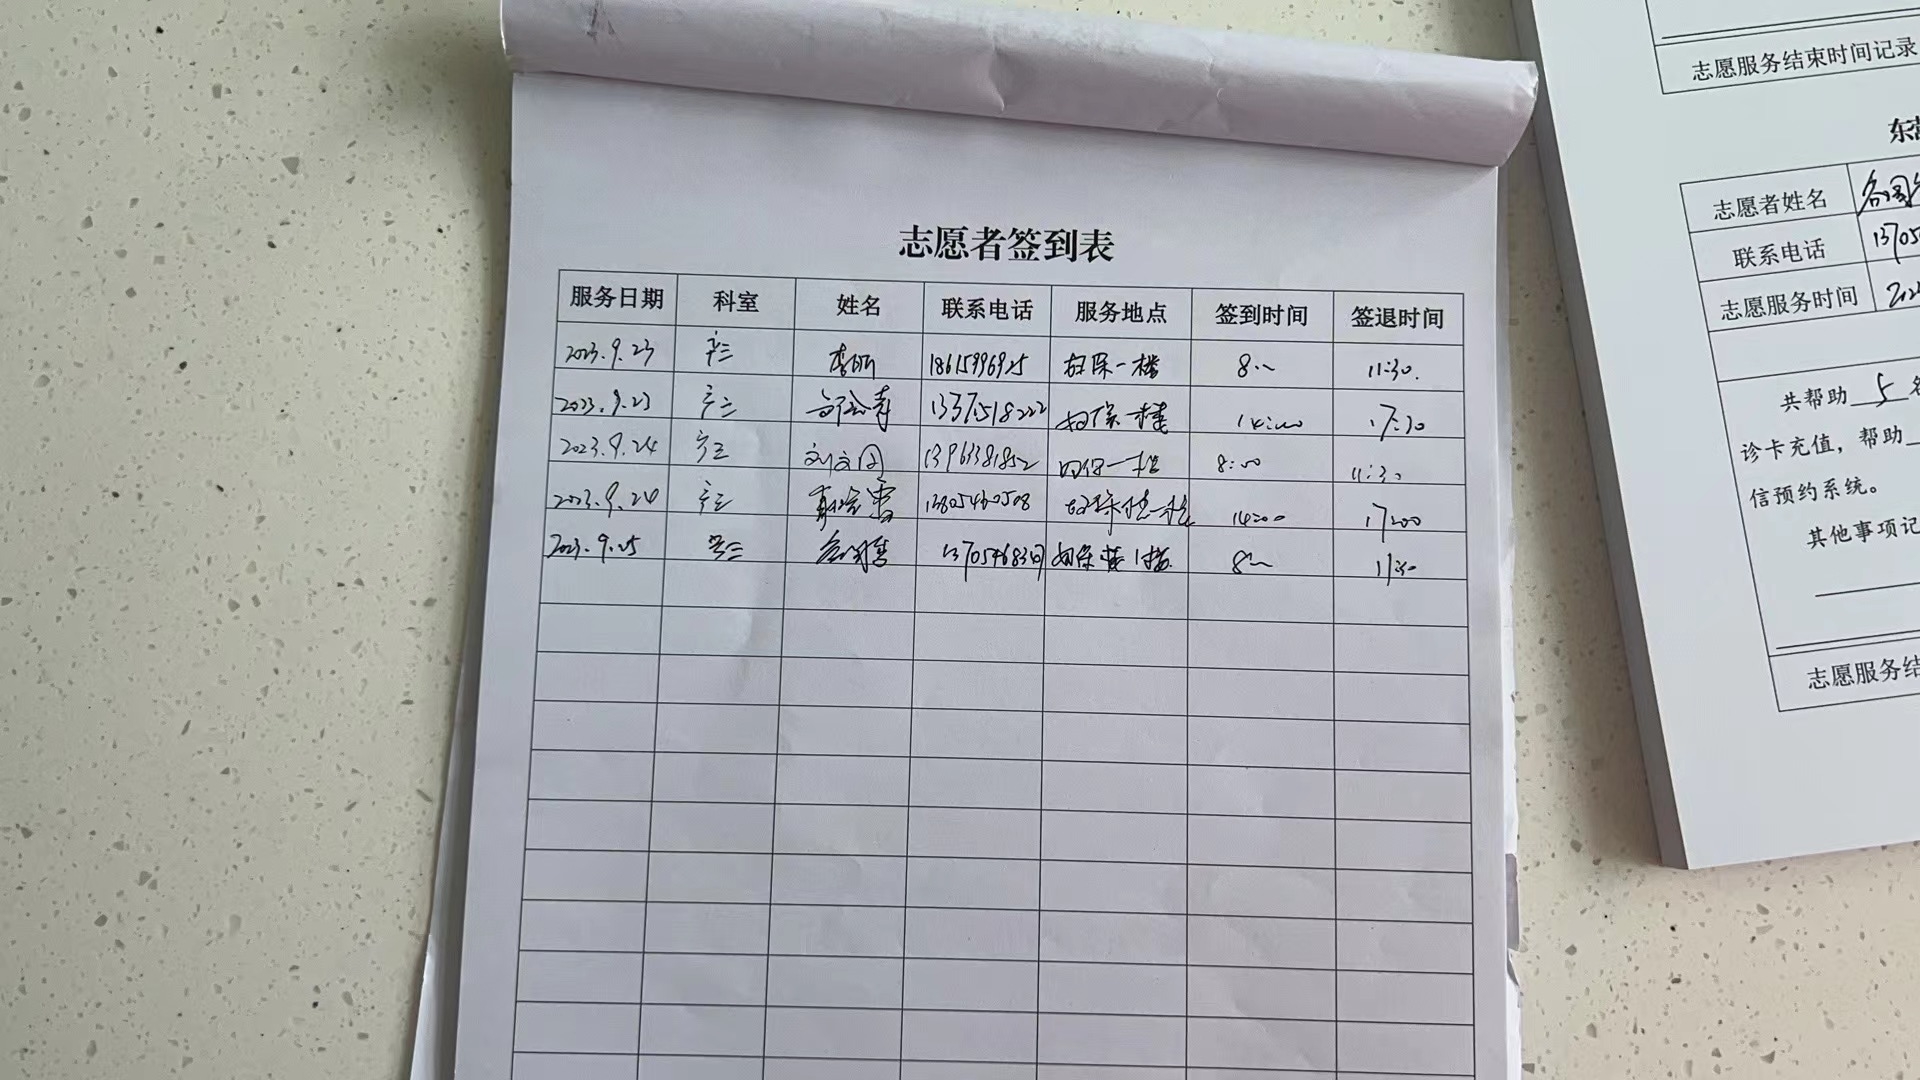 志愿者签到表
服务日期 科室 姓名 联系电话 服务地点 签到时间 签退时间
2023.9.23 产三 18615996925 妇保一楼 8:00 11:30.
2023.9.23 产三 13375518222 妇保一楼 14:00 17:30
2023.9.24 产三 刘文国 13963381852 妇保一楼 8:00 11:30
2023.9.24 产三 13805460508 14:00 17:00
2023.9.25 产三 妇保 1楼 8:00 11:30
志愿服务结束时间记录
志愿者姓名
联系电话 13705
志愿服务时间 202
共帮助 5 名
诊卡充值，帮助
信预约系统。
其他事项记
志愿服务结